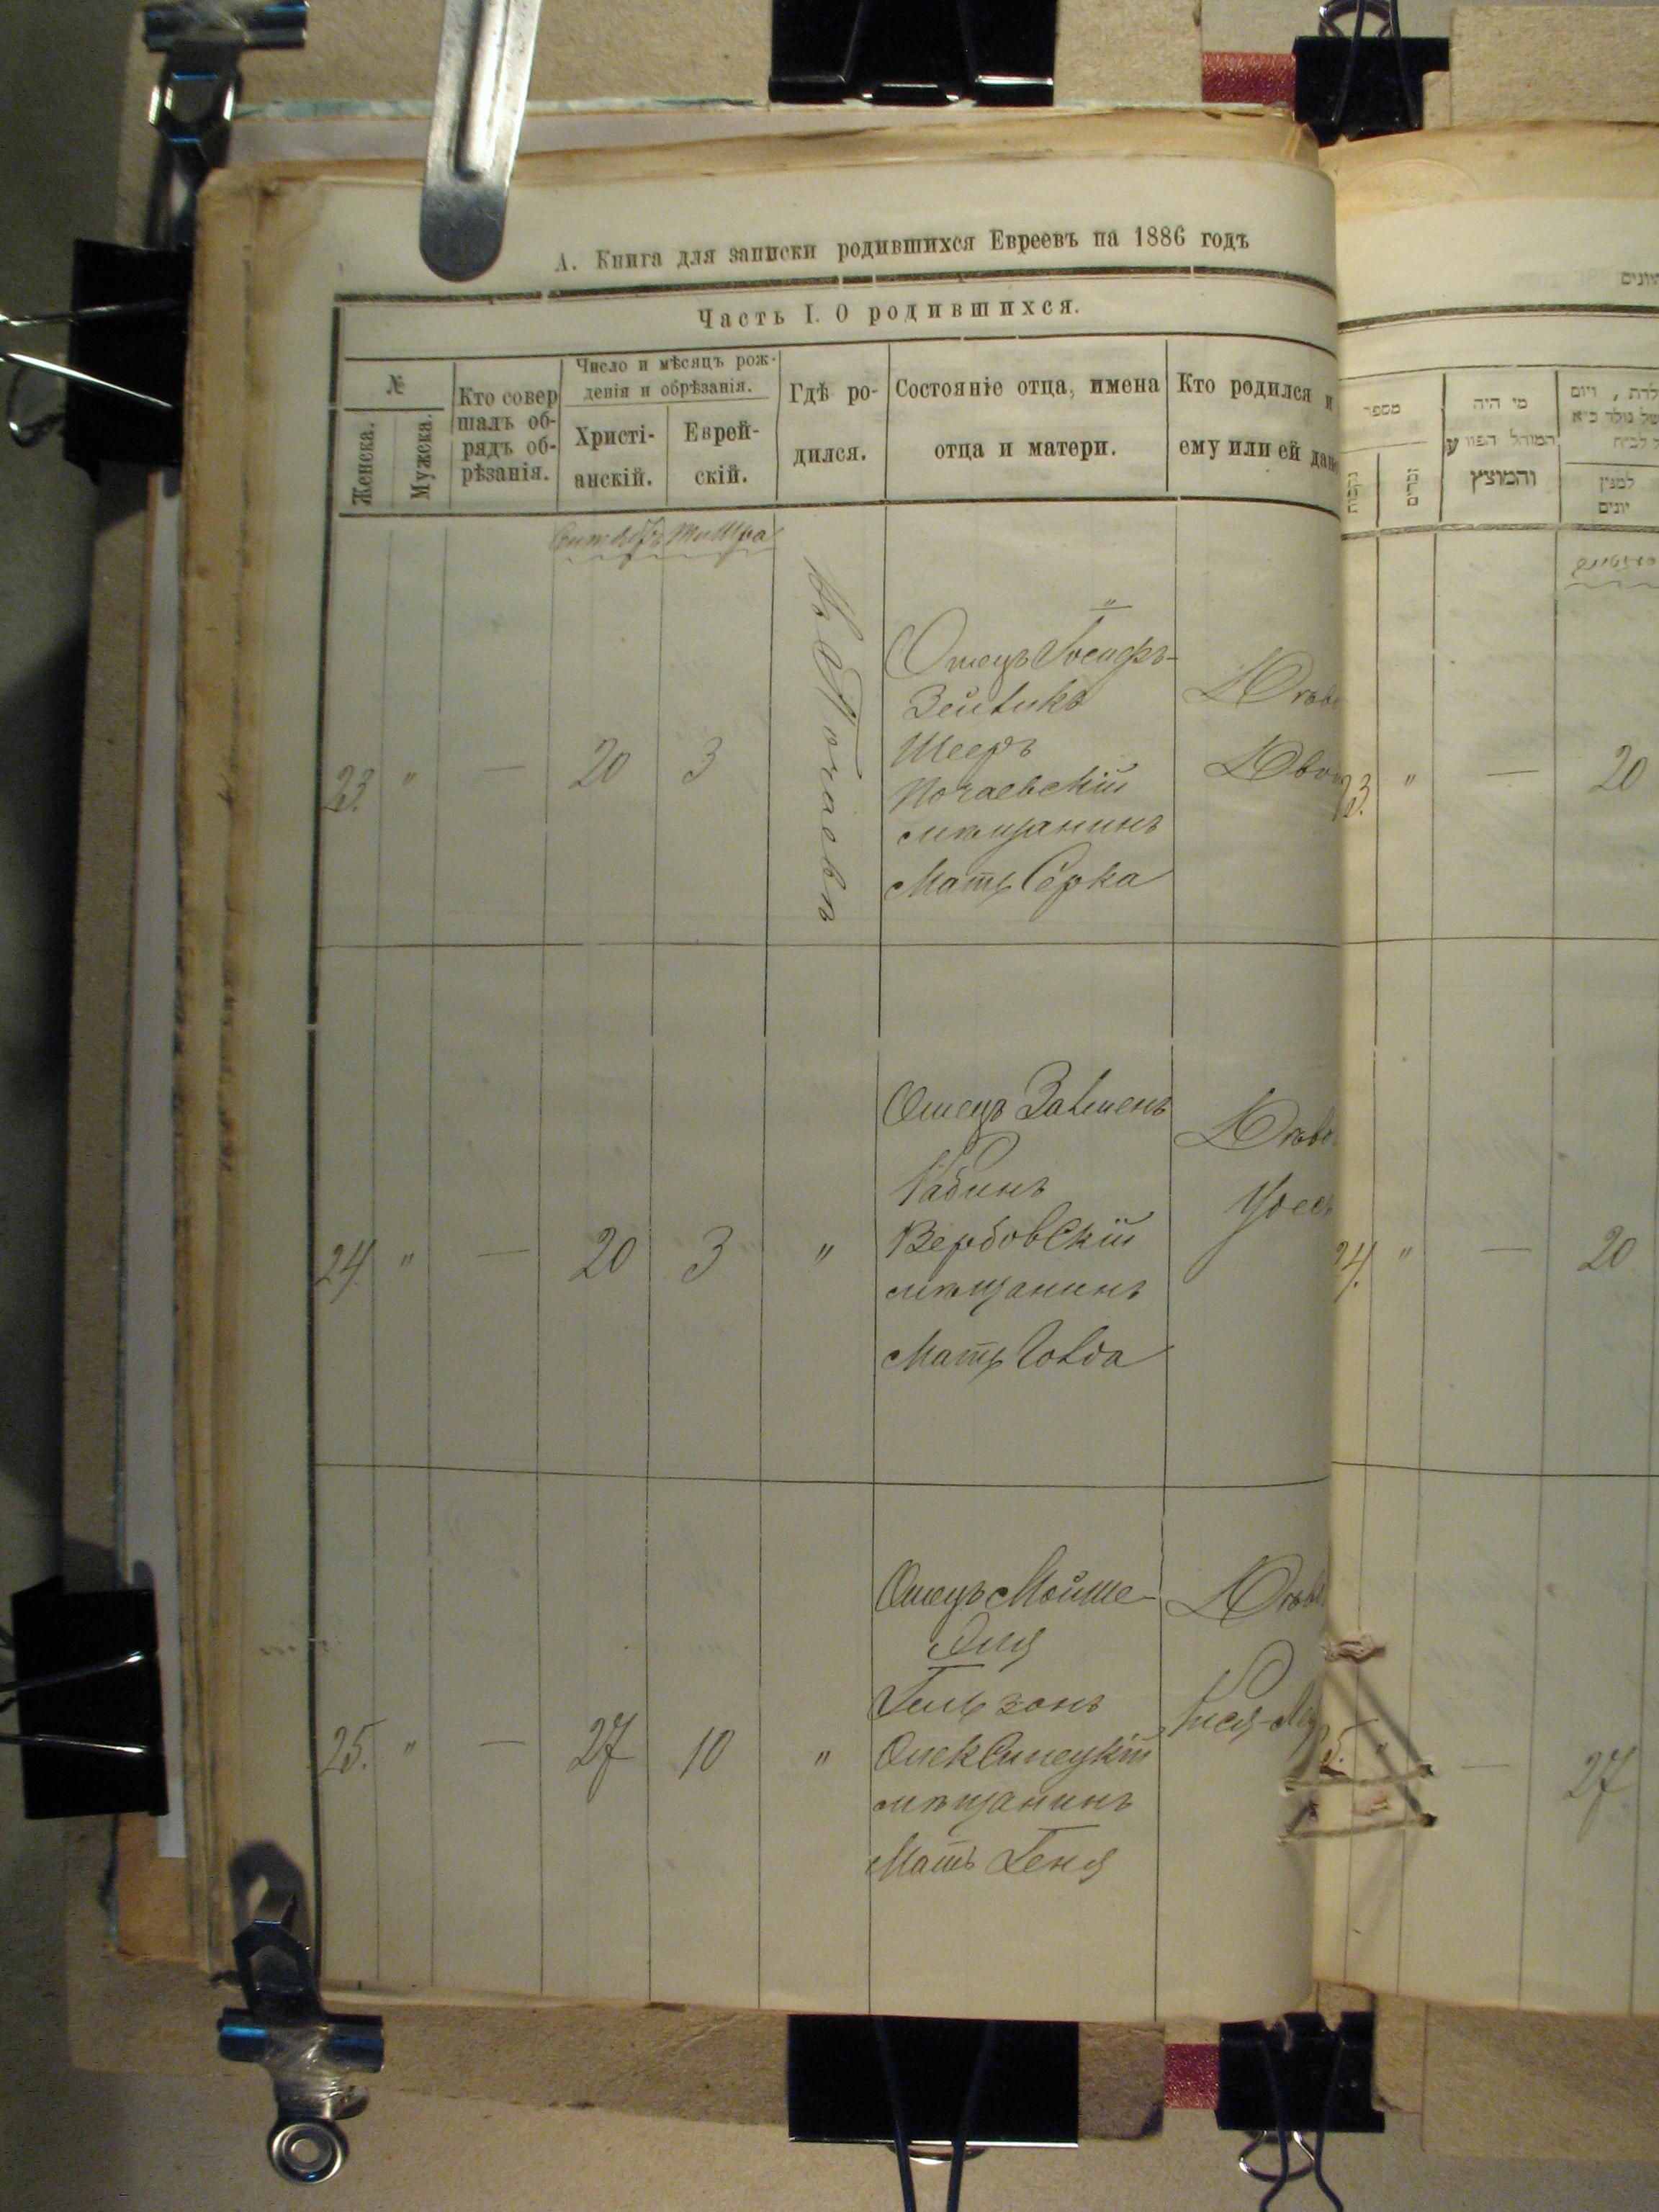 А. Книга для записки родившихся Евреевъ на 1886 годъ
Часть I. О родившихся.
№
Женска.
Мужеска.
Кто совер
шалъ об-
рядъ об-
рѣзанія.
Число и мѣсяцъ рож-
денія и обрѣзанія.
Христі-
анскій.
Еврей-
скій.
Гдѣ ро-
дился.
Состояніе отца, имена
отца и матери.
Кто родился и
ему или ей дано
Сентябрь Тишра
23. " — 20 3
въ Почаевѣ
"
Отецъ Іосифъ-
Зейликъ
Шееръ
Почаевскій
мѣщанинъ
Мать Сёрка
Дѣво
Дво
24. " — 20 3 "
Отецъ Залменъ
Рабинъ
Вербовскій
мѣщанинъ
Мать Голда
Дѣво
Удес
25. " — 27 10 "
Отецъ Мойше-
Эля
Гельзонъ
Олексинецкій
мѣщанинъ
Мать Геня
Дѣво
מספר
נקבות
זכרים
מי היה
המוהל הפורע
והמוצץ
למנין
יונים
23. " — 20
24. " — 20
5. " — 27